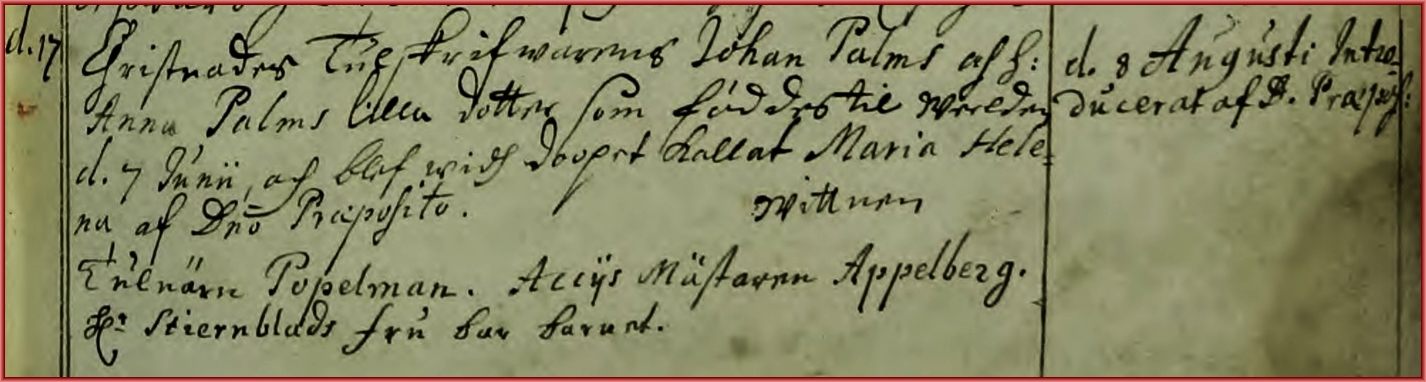 d. 17
Christnades Tulskrifwarens Johan Palms och h:
Anna Palms lilla dotter som föddes til werlden
d. 7 Junii, och blef widh doopet kallat Maria Hele-
na af Dño Præposito.
wittnen
Tulnärn Popelman. Accijs Mästaren Appelberg.
Hr Stiernblads fru bar barnet.
d. 8 Augusti Intro-
ducerat af D. Præpos: